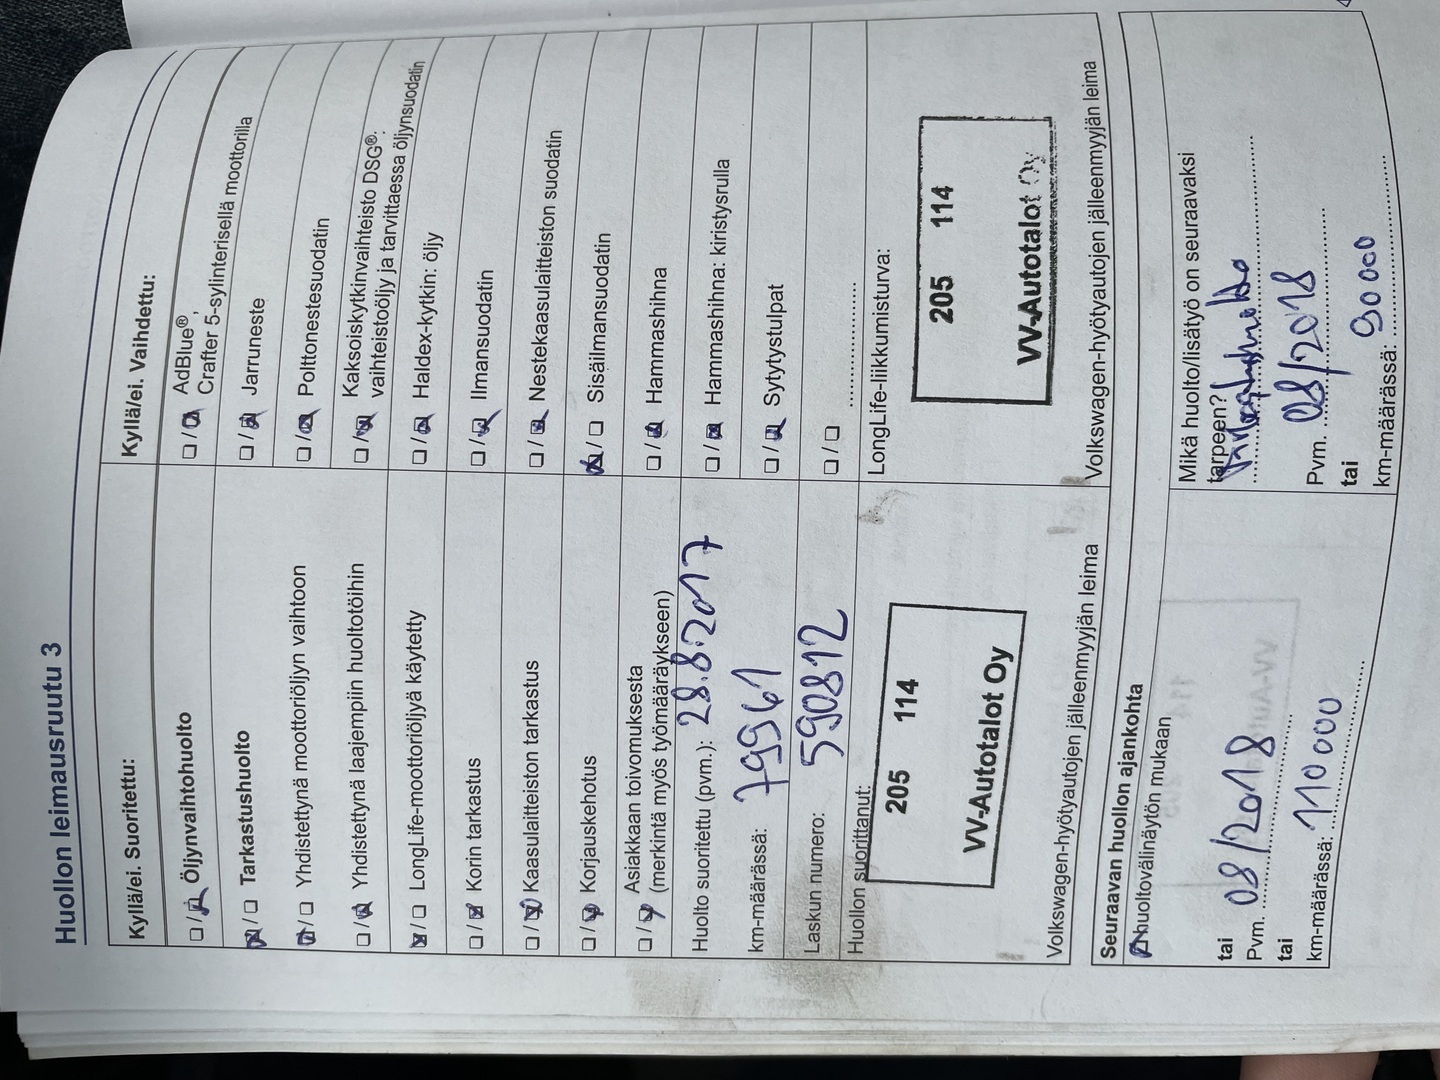 Huollon leimausruutu 3
Kyllä/ei. Suoritettu:
☐ / ☒ Öljynvaihtohuolto
☒ / ☐ Tarkastushuolto
☒ / ☐ Yhdistettynä moottoriöljyn vaihtoon
☐ / ☒ Yhdistettynä laajempiin huoltotöihin
☒ / ☐ LongLife-moottoriöljyä käytetty
☐ / ☒ Korin tarkastus
☐ / ☒ Kaasulaitteiston tarkastus
☐ / ☒ Korjauskehotus
☐ / ☒ Asiakkaan toivomuksesta
(merkintä myös työmääräykseen)
Huolto suoritettu (pvm.): 28.8.2017
km-määrässä: 79961
Laskun numero: 590812
Huollon suorittanut:
205 114
VV-Autotalot Oy
Volkswagen-hyötyautojen jälleenmyyjän leima
Kyllä/ei. Vaihdettu:
☐ / ☒ AdBlue®,
Crafter 5-sylinterisellä moottorilla
☐ / ☒ Jarruneste
☐ / ☒ Polttonestesuodatin
☐ / ☒ Kaksoiskytkinvaihteisto DSG®:
vaihteistoöljy ja tarvittaessa öljynsuodatin
☐ / ☒ Haldex-kytkin: öljy
☐ / ☒ Ilmansuodatin
☐ / ☒ Nestekaasulaitteiston suodatin
☒ / ☐ Sisäilmansuodatin
☐ / ☒ Hammashihna
☐ / ☒ Hammashihna: kiristysrulla
☐ / ☒ Sytytystulpat
☐ / ☐ ....................
LongLife-liikkumisturva:
205 114
VV-Autotalot Oy
Volkswagen-hyötyautojen jälleenmyyjän leima
Seuraavan huollon ajankohta
☒ huoltovälinäytön mukaan
tai
Pvm. 08/2018
tai
km-määrässä: 110 000
Mikä huolto/lisätyö on seuraavaksi
tarpeen?
Pvm. 08/2018
tai
km-määrässä: 90 000